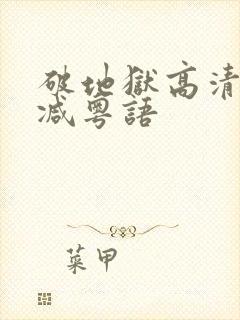 破地獄高清
減粵語
菜甲